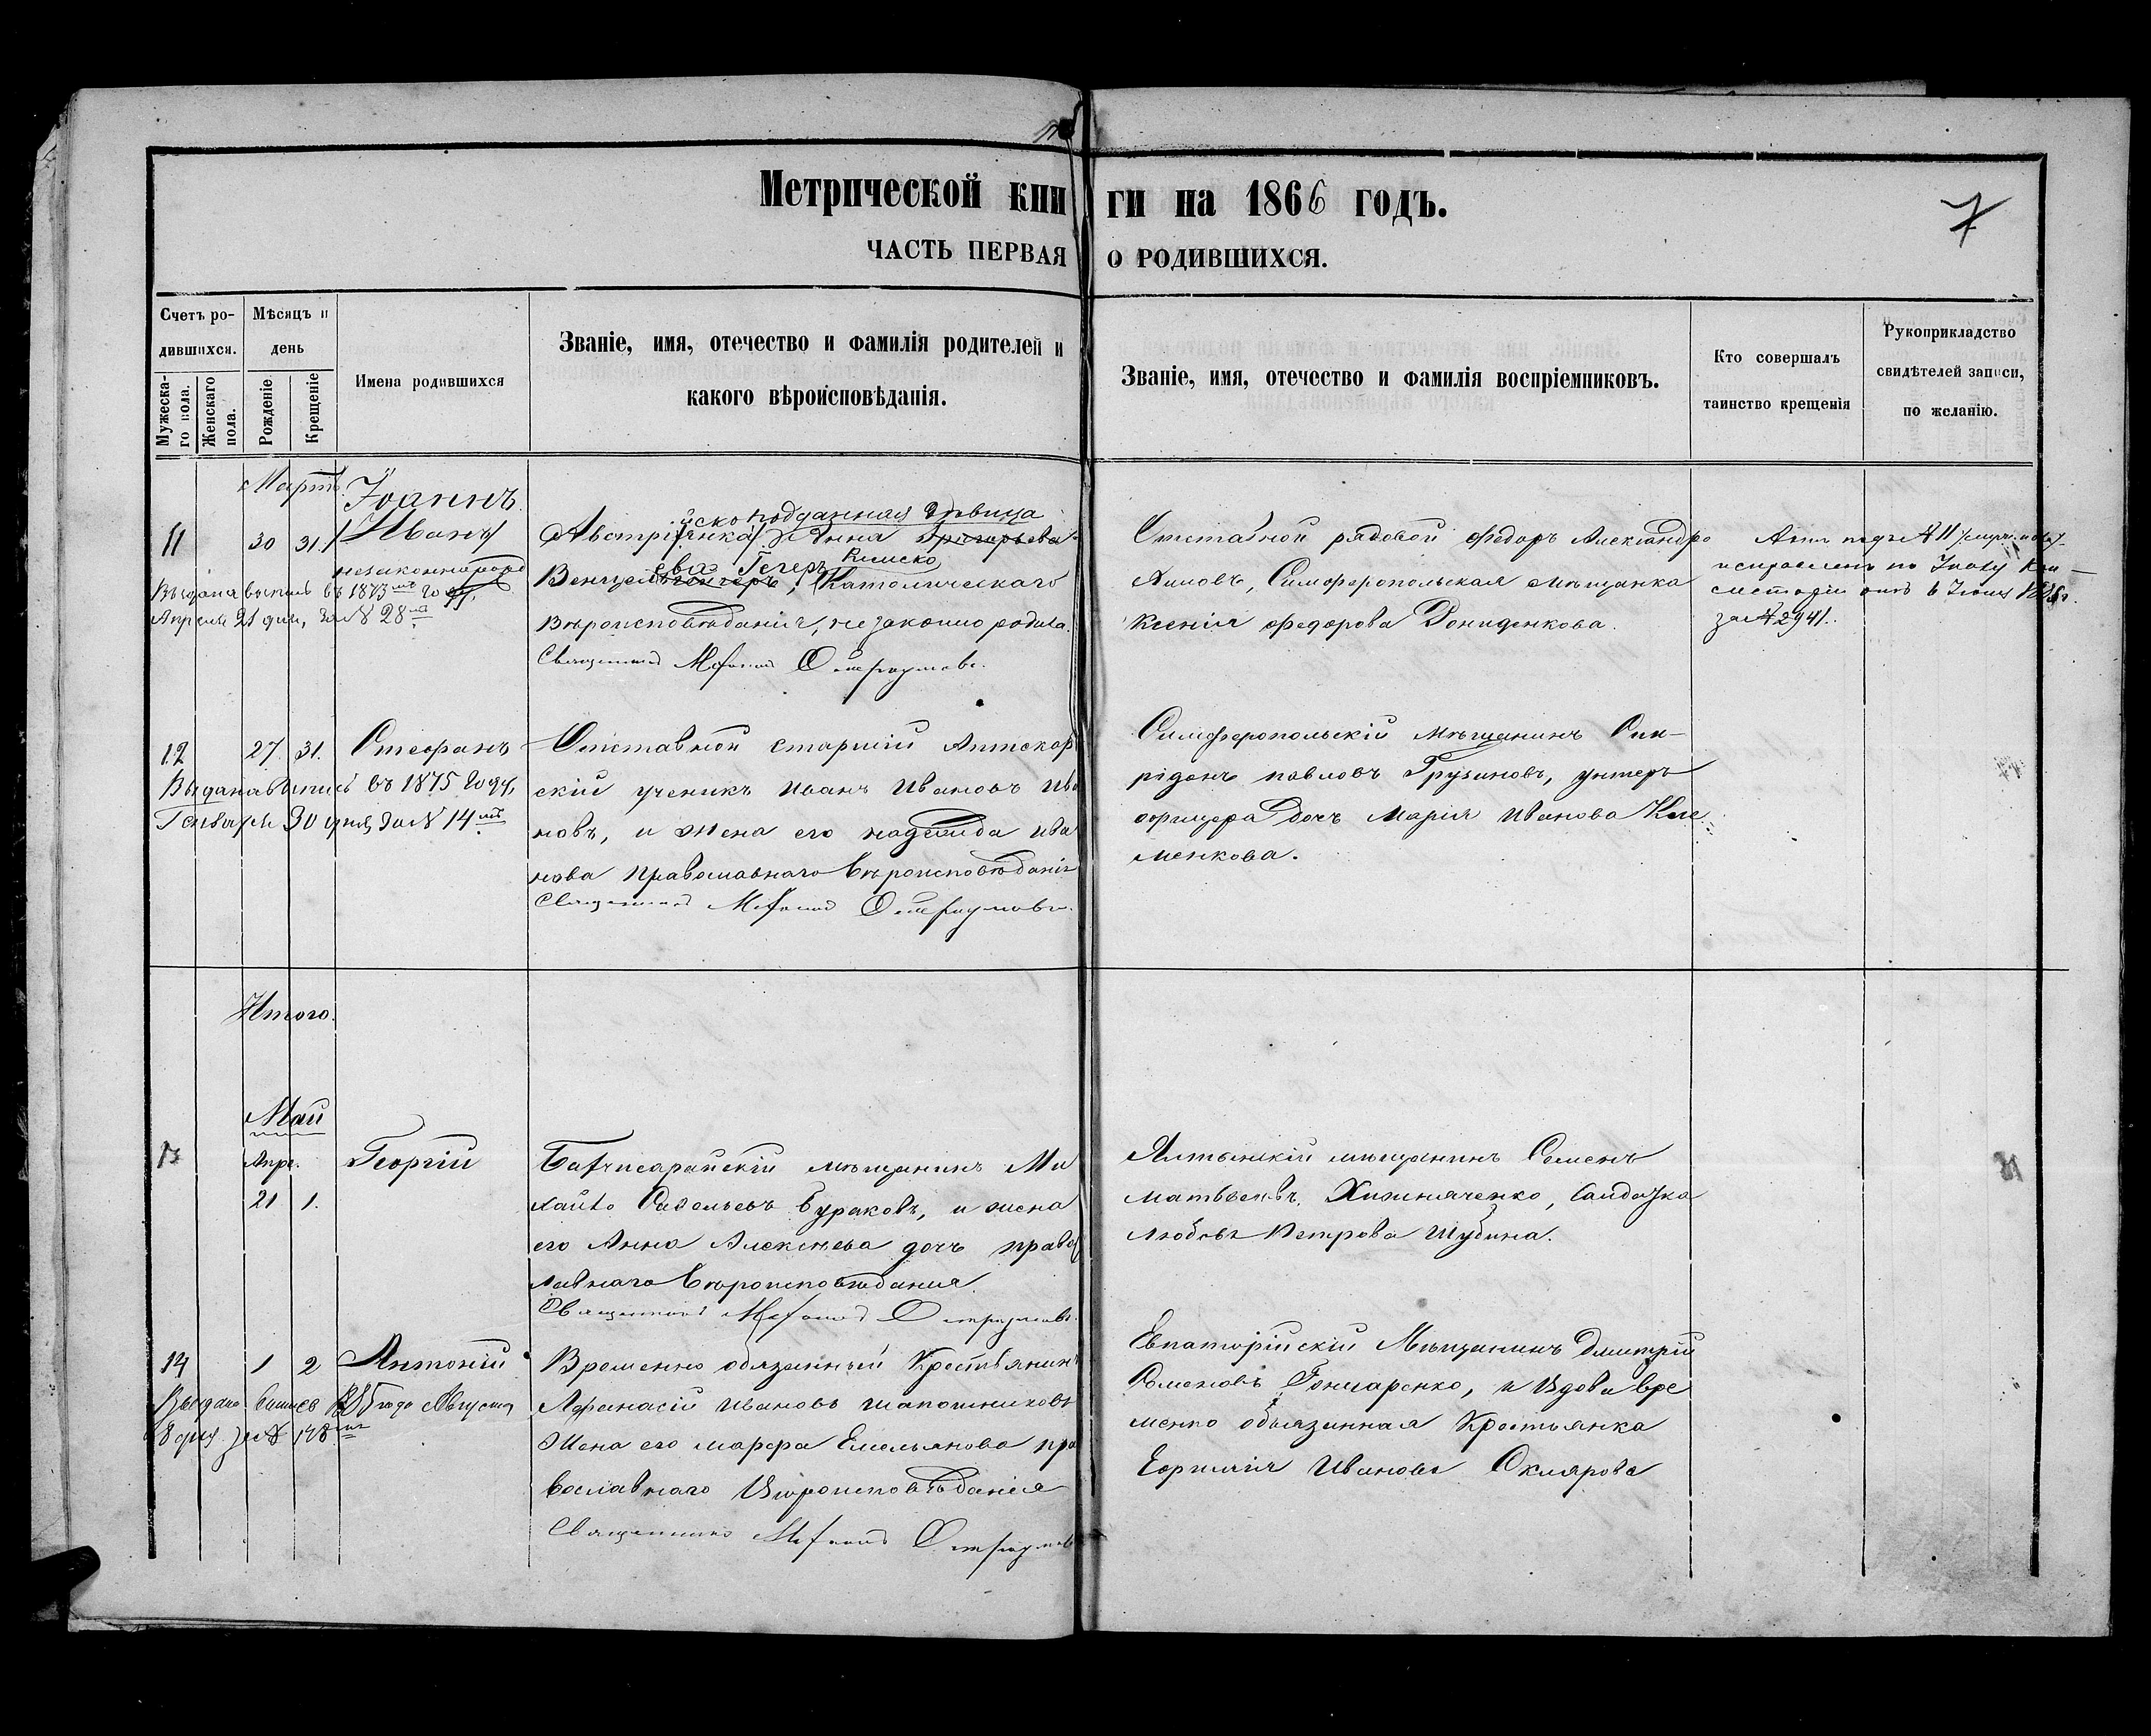 Метрической кни ги на 1866 годъ.
7
ЧАСТЬ ПЕРВАЯ О РОДИВШИХСЯ.
Счетъ ро-
дившихся.
Мужеска-
го пола.
Женскаго
пола.
Мѣсяцъ и
день
Рожденіе
Крещеніе
Имена родившихся
Званіе, имя, отечество и фамилія родителей и
какого вѣроисповѣданія.
Званіе, имя, отечество и фамилія воспріемниковъ.
Кто совершалъ
таинство крещенія
Рукоприкладство
свидѣтелей записи,
по желанію.
Мартъ
Іоаннъ
11 30 31. Иванъ
незаконнорожд
Выдана выпись въ 1873мъ году
Апреля 21 дня, за N 28м
йско подданная девица
Австріянка Анна Григорьева
ева Гегеръ Римско
Венцель , Католическаго
Вѣроисповѣданія, незаконно родила.
Священникъ
Отставной рядовой Федоръ Александро
Акимовъ, Симферопольская мѣщанка
Ксенія Федорова Дониденкова.
Актъ подъ N 11
исправленъ по Указу Кон-
систоріи отъ 6 Іюня
за N 2941.
12 27. 31. Стефанъ
Выдана Выпись въ 1875 году,
Генваря 30 дня, за N 14мъ
Отставной старшій Аптекар
скій ученикъ Иванъ Ивановъ Ива
новъ, и жена его надежда ива
нова православнаго Вѣроисповѣданія
Священникъ
Симферопольскій мѣщанинъ Спи-
ридонъ павловъ Грузиновъ, унтеръ
офицера дочь Марія Иванова Кле
менкова.
Итого.
Май
13 Апре. Георгій
21 1.
Бахчисарайскій мѣщанинъ Ми
хайло Савельевъ Бураковъ, и жена
его Анна Алексѣева дочь право
лавнаго Вѣроисповѣдания.
Священникъ
Ялтынскій мѣщанинъ Семенъ
матвѣевъ Хижняченко, Солдатка
любовь Петрова Шубина.
14 1 2 Антоній
Выдана выпись года Августа
8 дня за N 148
Временно обязанный Крестьянинъ
Афанасій Ивановъ шапошниковъ
Жена его марфа Емельянова пра
вославнаго Вѣроисповѣданія
Священникъ
Евпаторійскій Мѣщанинъ Дмитрій
Семеновъ Гончаренко, и Вдова вре
менно обязанная Крестьянка
Евфимія Иванова Склярова